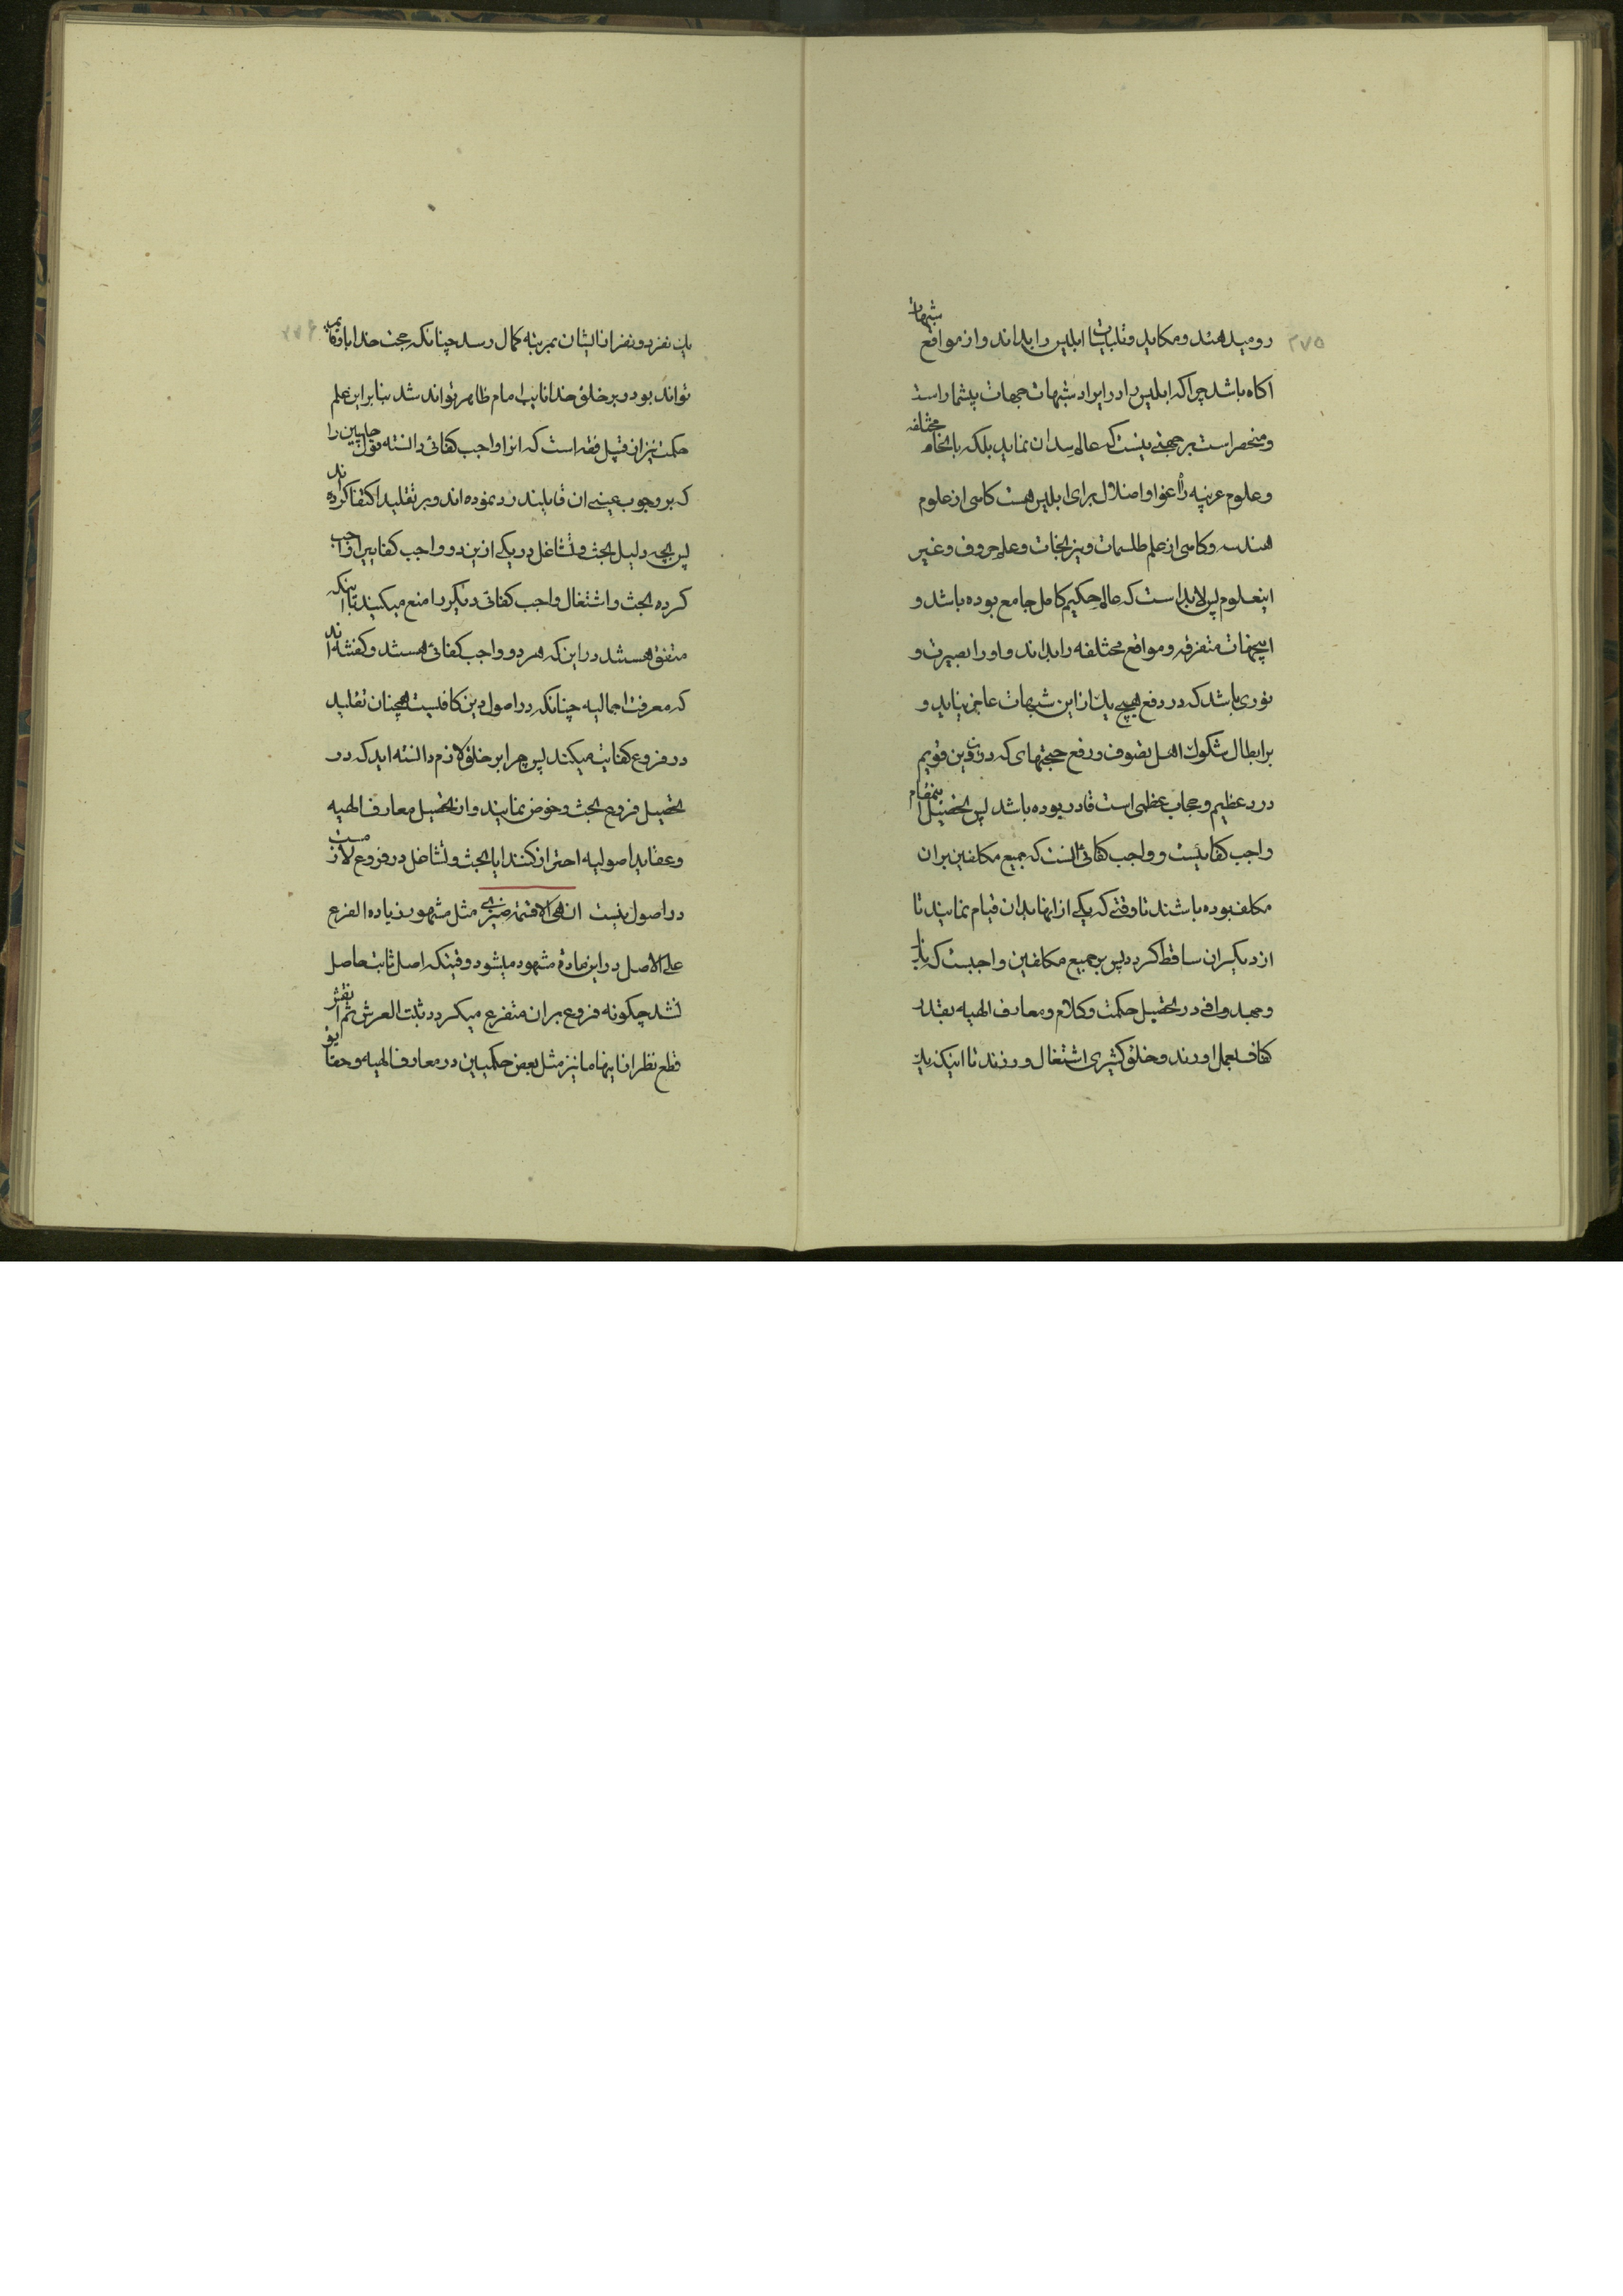 ۲۷۵
رو میدهند و مکاید و تلبیسات ابلیس را بداند و از مواقع شبهات
اکاه باشد چرا که ابلیس را در ایراد شبهات جهات بیشمار است
و منحصر است بر جهتی نیست که عالم سد ان نماید بلکه بانحاء مختلفه
و علوم غریبه را اغوا و اضلال برای ابلیس هست کاهی از علوم
هندسه و کاهی از علم طلسمات و نیرنجات و علم حروف و غیر
اینعلوم پس لابد است که عالم حکیم کامل جامع بوده باشد و
اینجهات متفرقه و مواقع مختلفه را بداند و او را بصیرت و
نوری باشد که در دفع هیچ یک از این شبهات عاجز نیاید و
بر ابطال شکوک اهل تصوف و رفع حجتهای که در دین قویم
درد عظیم و حجاب عظمی است قادر بوده باشد پس تحصیل اینمقام
واجب کفائیست و واجب کفائی انست که جمیع مکلفین بران
مکلف بوده باشند تا وقتی که یکی از انها بدان قیام نمایند تا
از دیکران ساقط کردد پس بر جمیع مکلفین واجبست که
و جهد وافی در تحصیل حکمت و کلام و معارف الهیه بقدر
کفاف بعمل اورند و خلق کثیری اشتغال ورزند تا اینکه یک
یک نفر دو نفر از ایشان بمرتبه کمال رسد چنانکه حجت خدا
تواند بود و بر خلق خدا نایب امام ظاهر تواند شد بنابراین علم
حکمت نیز از قبیل فقه است که انرا واجب کفائی دانسته قول را
که بر وجوب عینی ان قایلند رد نموده اند و بر تقلید اکتفا کرده اند
پس بچه دلیل بحث و تشاغل در یکی ازین دو واجب کفایی را واجب
کرده بحث و اشتغال واجب کفائی دیکر را منع میکنید با اینکه
متفق هستند در این که هر دو واجب کفائی هستند و کفته اند
که معرفت اجمالیه چنانکه در اصول دین کافیست همچنان تقلید
در فروع کفایت میکند پس چرا بر خلق لازم دانسته اید که در
تحصیل فروع بحث و خوض نمایند و از تحصیل معارف الهیه
و عقاید اصولیه احتراز کنند ایا بحث و تشاغل در فروع لازمست
در اصول نیست ان هی الا قسمة ضیزی مثل مشهور زیادة الفرع
علی الاصل در این ماده مشهود میشود وقتیکه اصل ثابت حاصل
نشد چکونه فروع بران متفرع میکردد ثبت العرش ثم انقش
قطع نظر از اینها ما نیز مثل بعض حکمیین در معارف الهیه و حقایق